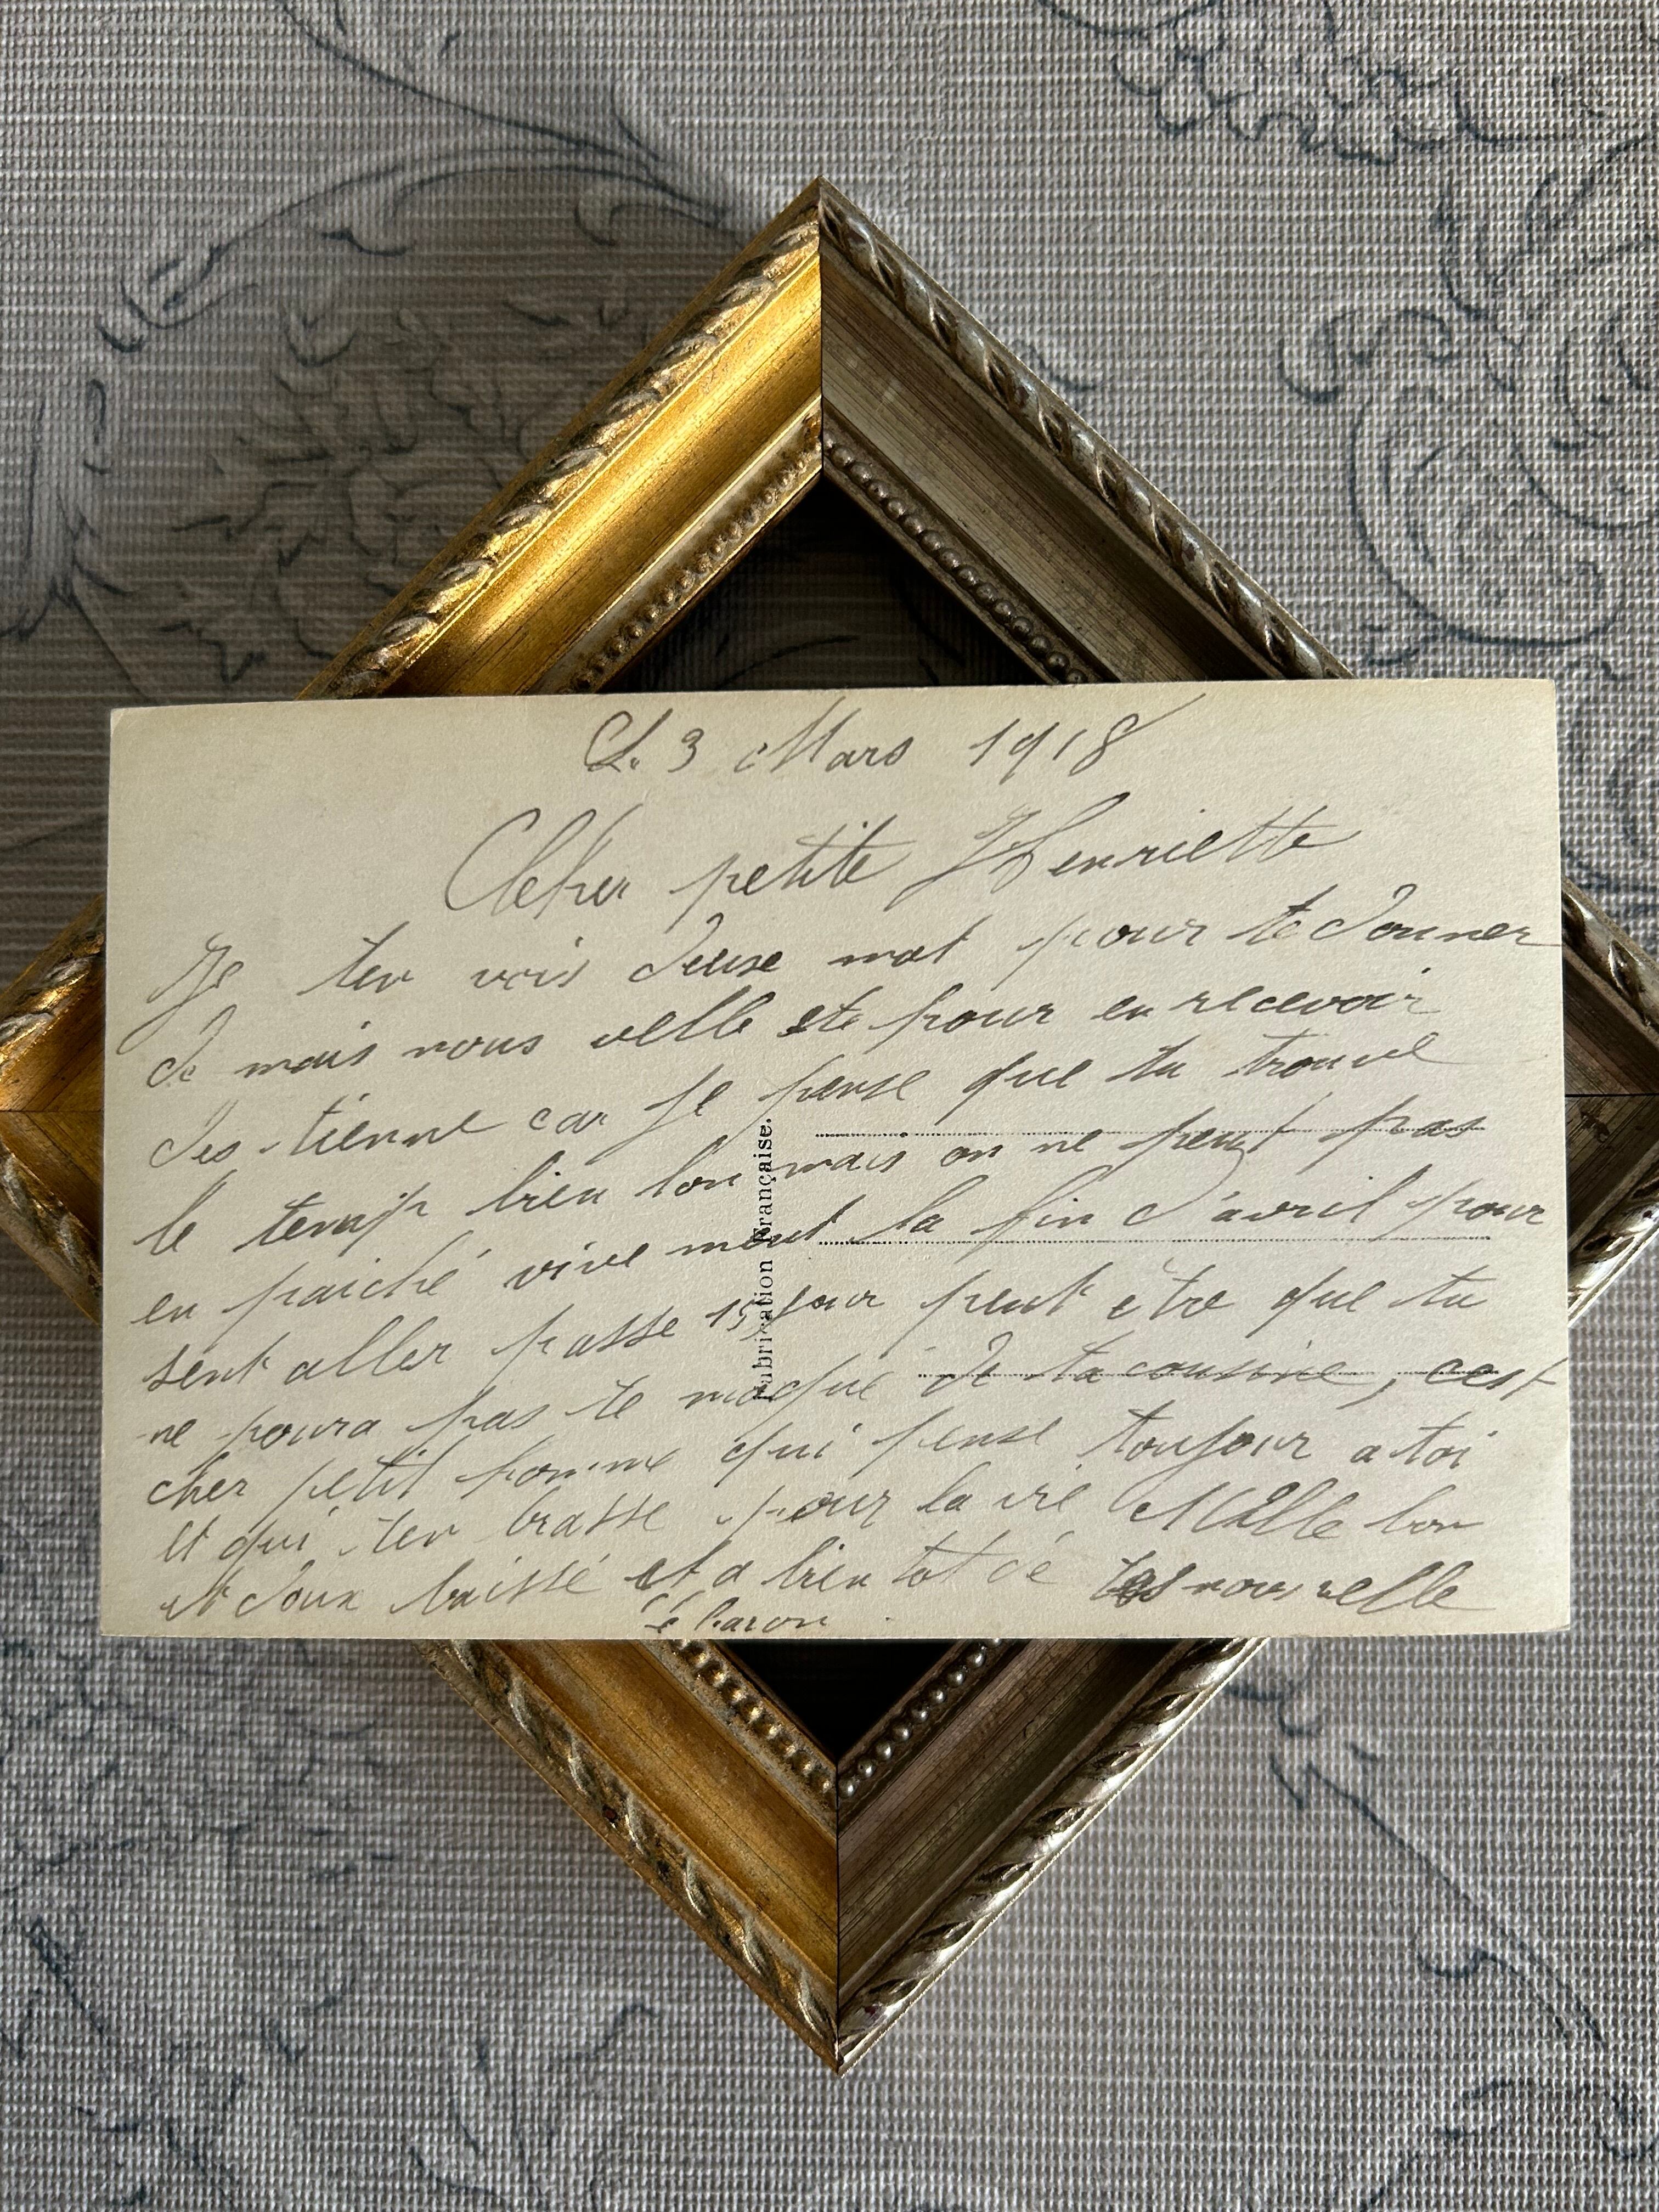 Le 3 Mars 1918
Cher petite Henriette
Je ten vois deuse mot pour te donner
de mais nous velle ete pour en recevoir
des tienne car je pense que tu trouve
le temp bien lon mais on ne peut pas
en paiché vive ment la fin d'avril pour
sent aller passe 15 jour peut être que tu
ne poura pas te moqué de ta cousine, cest
cher petit homme qui pense toujour a toi
et qui ten brasse pour la vie Mille bon
et doux baissé et a bien tot dé tes nous velle
lé baron
Fabrication Française.